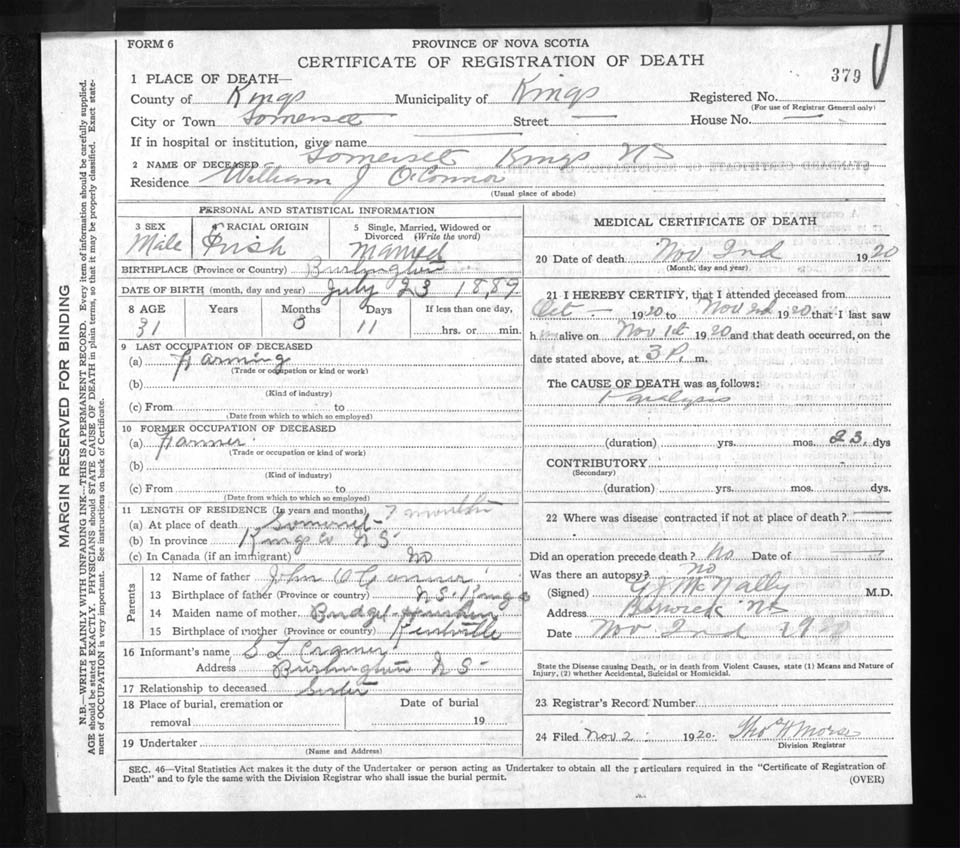 FORM 6
PROVINCE OF NOVA SCOTIA
CERTIFICATE OF REGISTRATION OF DEATH
379
1 PLACE OF DEATH—
County of Kings Municipality of Kings Registered No.
(For use of Registrar General only)
City or Town Somerset Street — House No. —
If in hospital or institution, give name —
Somerset Kings NS
2 NAME OF DECEASED
William J O'Connor
Residence
(Usual place of abode)
PERSONAL AND STATISTICAL INFORMATION
3 SEX Male
4 RACIAL ORIGIN Irish
5 Single, Married, Widowed or Divorced (Write the word) Married
BIRTHPLACE (Province or Country) Burlington
DATE OF BIRTH (month, day and year) July 23 1889
8 AGE Years Months Days If less than one day,
31 3 11 hrs. or min.
9 LAST OCCUPATION OF DECEASED
(a) Farming
(Trade or occupation or kind or work)
(b)
(Kind of industry)
(c) From to
(Date from which to which so employed)
10 FORMER OCCUPATION OF DECEASED
(a) Farmer
(Trade or occupation or kind of work)
(b)
(Kind of industry)
(c) From to
(Date from which to which so employed)
11 LENGTH OF RESIDENCE (In years and months) 7 months
(a) At place of death Somerset
(b) In province Kings Co NS
(c) In Canada (if an immigrant) No
Parents
12 Name of father John O'Connor
13 Birthplace of father (Province or country) NS Kings
14 Maiden name of mother Bridget
15 Birthplace of mother (Province or country) Kentville
16 Informant's name
Address Burlington NS
17 Relationship to deceased Sister
18 Place of burial, cremation or removal Date of burial
19
19 Undertaker
(Name and Address)
MEDICAL CERTIFICATE OF DEATH
20 Date of death Nov 2nd 1920
(Month, day and year)
21 I HEREBY CERTIFY, that I attended deceased from
Oct — 1920 to Nov 2nd 1920 that I last saw
h im alive on Nov 1st 1920 and that death occurred, on the
date stated above, at 3 P. m.
The CAUSE OF DEATH was as follows:
Paralysis
(duration) yrs. mos. 23 dys
CONTRIBUTORY
(Secondary)
(duration) yrs. mos. dys.
22 Where was disease contracted if not at place of death? —
Did an operation precede death? No Date of —
Was there an autopsy? No
(Signed) McNally M.D.
Address Berwick NS
Date Nov 2nd 1920
State the Disease causing Death, or in death from Violent Causes, state (1) Means and Nature of
Injury, (2) whether Accidental, Suicidal or Homicidal.
23 Registrar's Record Number
24 Filed Nov 2 1920 Thos H Morse
Division Registrar
SEC. 46—Vital Statistics Act makes it the duty of the Undertaker or person acting as Undertaker to obtain all the particulars required in the "Certificate of Registration of
Death" and to fyle the same with the Division Registrar who shall issue the burial permit.
(OVER)
MARGIN RESERVED FOR BINDING
N.B.—WRITE PLAINLY WITH UNFADING INK—THIS IS A PERMANENT RECORD. Every item of information should be carefully supplied.
AGE should be stated EXACTLY. PHYSICIANS should STATE CAUSE OF DEATH in plain terms, so that it may be properly classified. Exact state-
ment of OCCUPATION is very important. See instructions on back of Certificate.